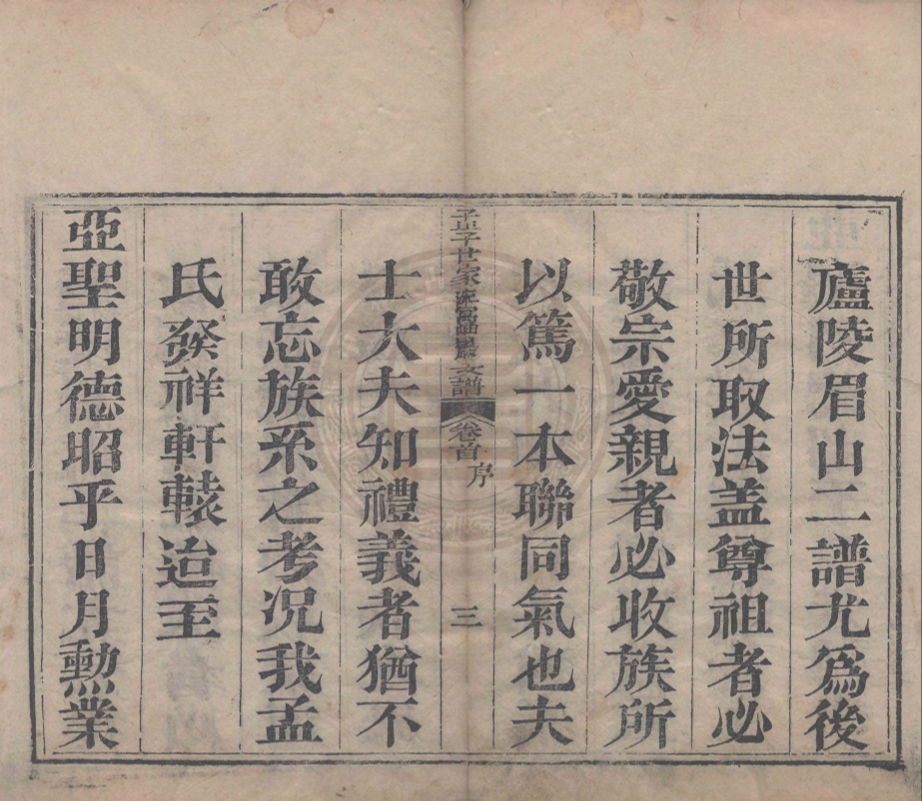 廬陵眉山二譜尤爲後
世所取法盖尊祖者必
敬宗愛親者必收族所
以篤一本聯同氣也夫
孟子世家 支譜 卷首 序 三
士大夫知禮義者猶不
敢忘族系之考况我孟
氏發祥軒轅迨至
亞聖明德昭乎日月勲業